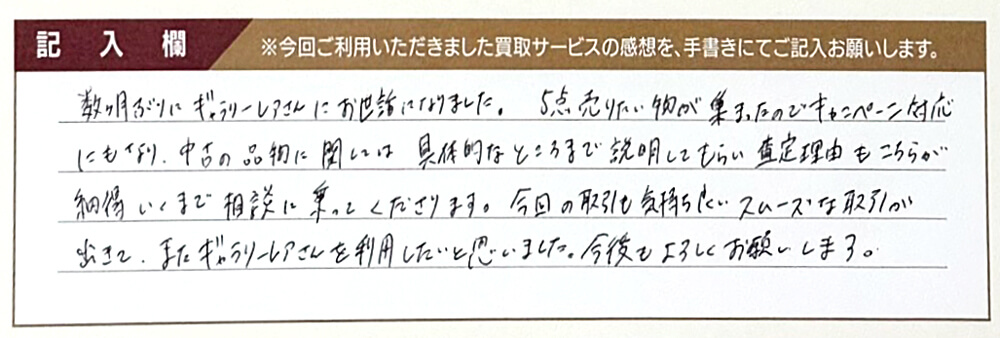 記入欄
※今回ご利用いただきました買取サービスの感想を、手書きにてご記入お願いします。
数ヶ月ぶりにギャラリーレアさんにお世話になりました。5点売りたい物が集まったのでキャンペーン対応
にもなり、中古の品物に関しては具体的なところまで説明してもらい査定理由もこちらが
納得いくまで相談に乗ってくださります。今回の取引も気持ち良くスムーズな取引が
出きて、またギャラリーレアさんを利用したいと思いました。今後もよろしくお願いします。